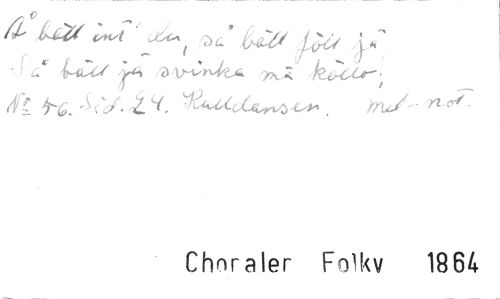 Å bätt int du, så bätt fölt jä,
Så bätt jä svinka mä kötto,
No 56. Sid. 24. Kulldansen. mel-not.
Choraler Folkv 1864